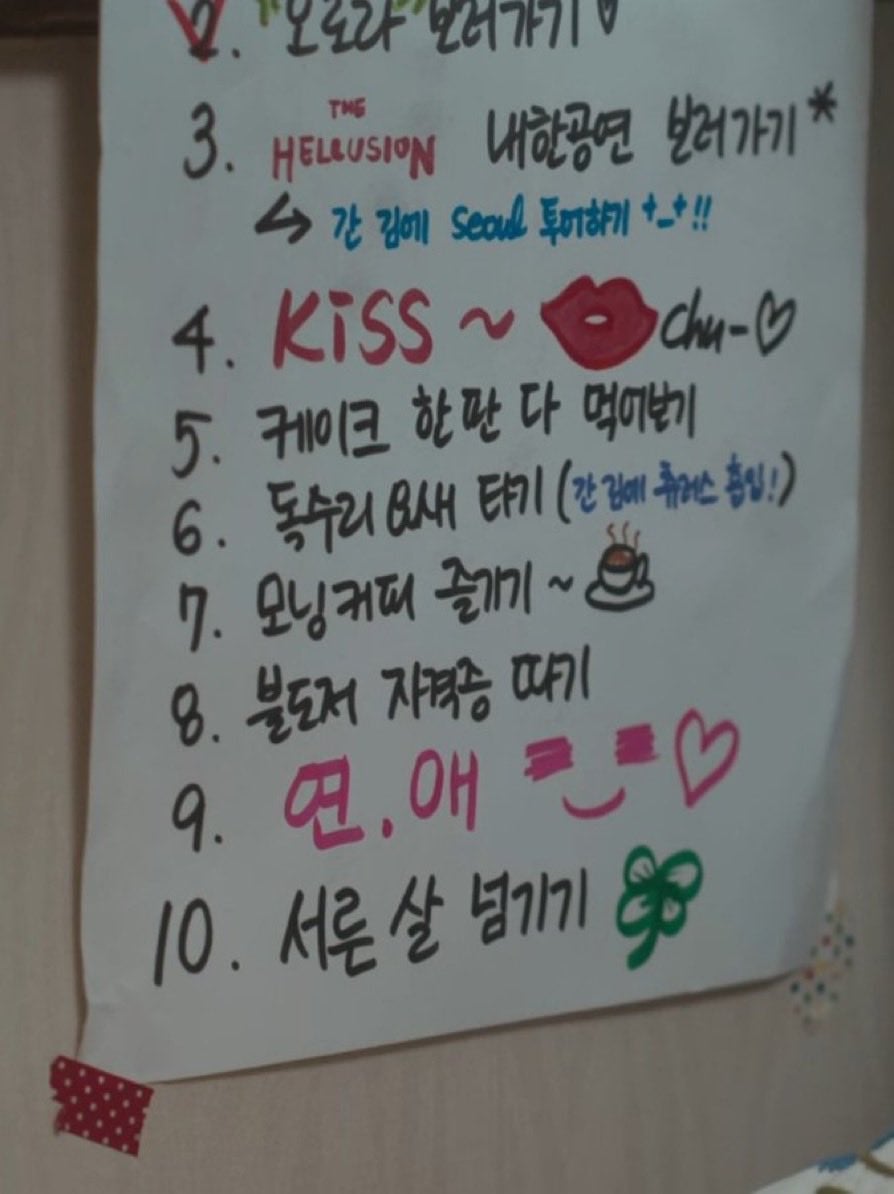 2. 오로라 보러가기♡
3. THE HELLUSION 내한공연 보러가기*
↪ 간 김에 Seoul 투어하기 +_+!!
4. KiSS ~ chu-♡
5. 케이크 한 판 다 먹어보기
6. 독수리 요새 타기 (간 김에 츄러스 흡입!)
7. 모닝커피 즐기기~
8. 불도저 자격증 따기
9. 연.애 ♡
10. 서른 살 넘기기